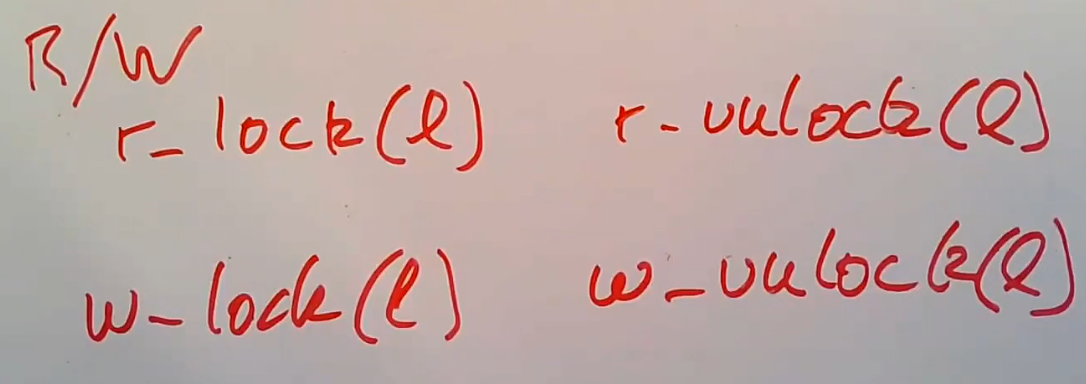 R/W
r_lock(l) r_unlock(l)
w_lock(l) w_unlock(l)